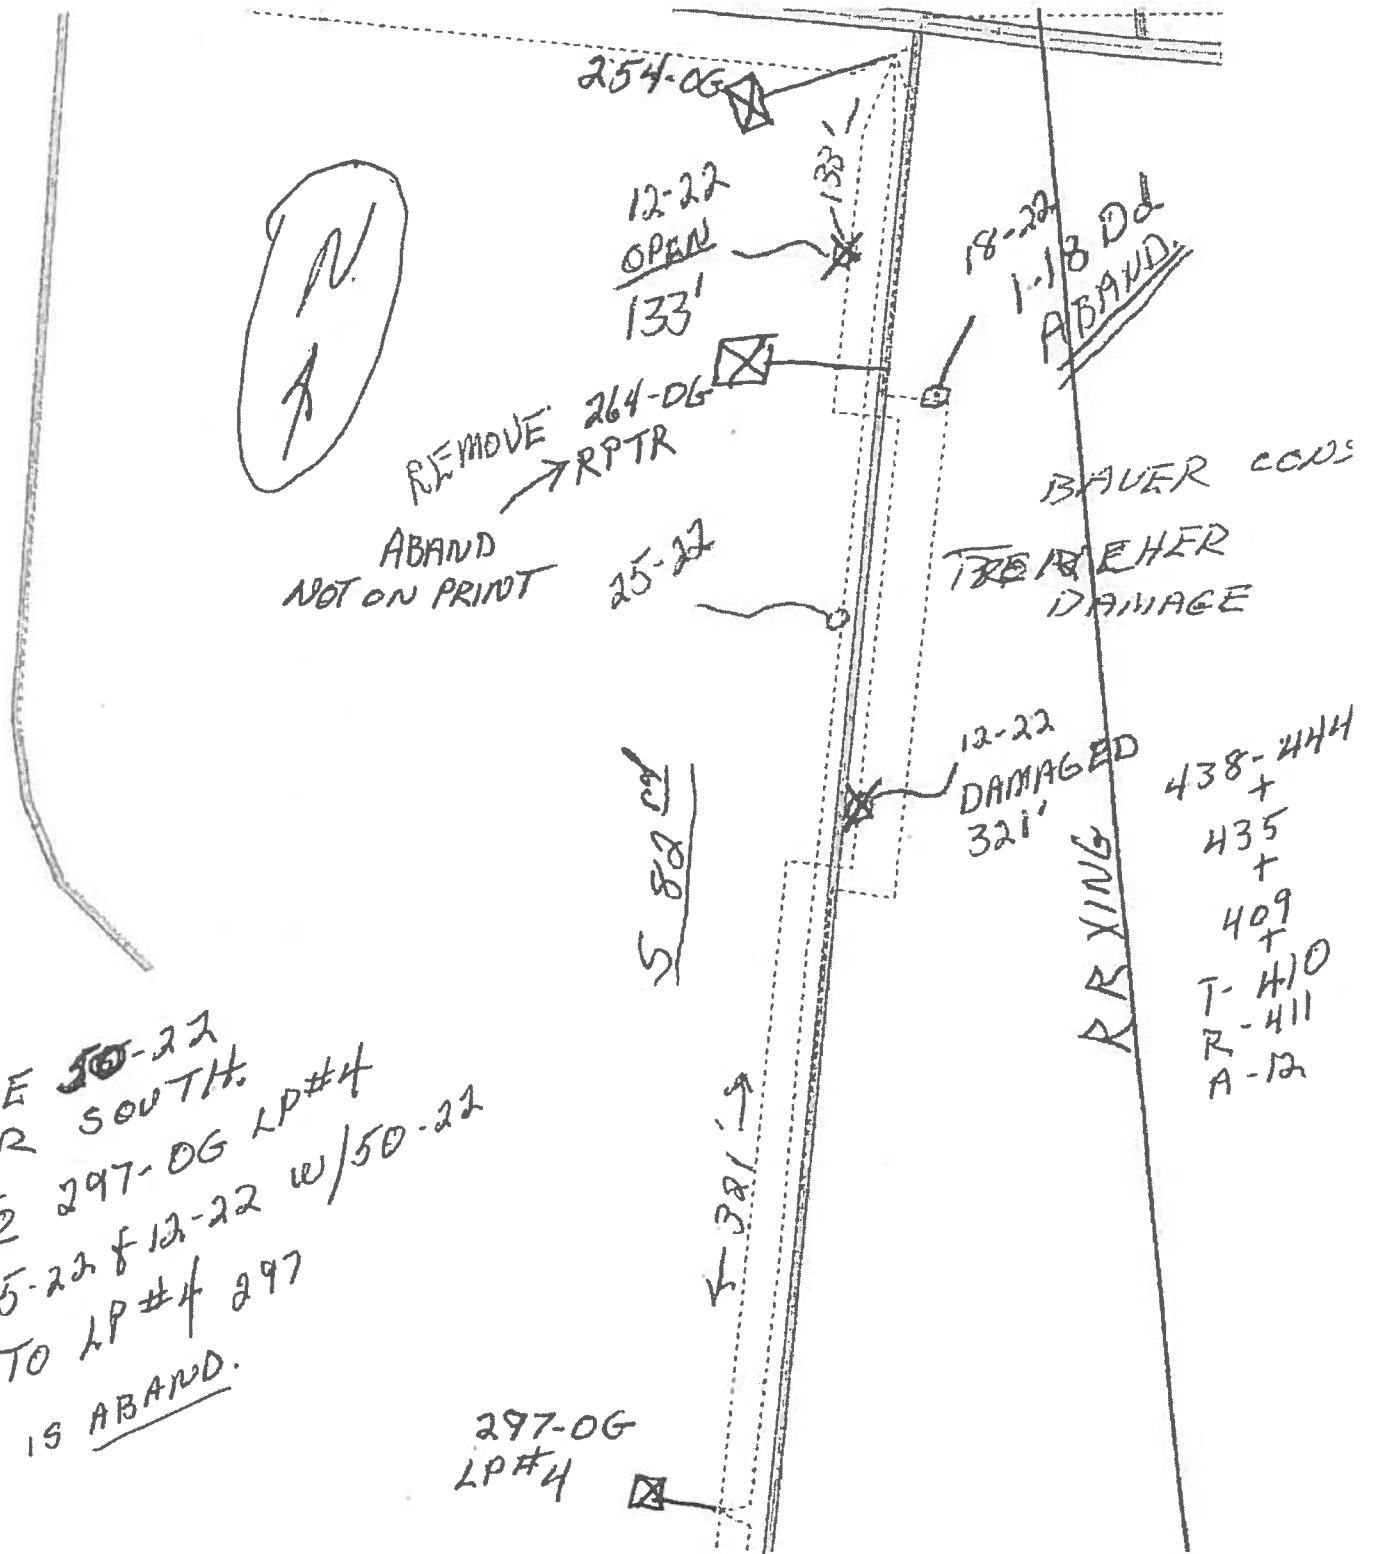 254-OG
133'
12-22
OPEN
133'
N.
18-22
1-18 Dd
ABAND.
REMOVE 264-OG
RPTR
ABAND
NOT ON PRINT
25-22
BAUER CONS
DAMAGE
12-22
DAMAGED
321'
S 82
RR XING
438-444
+
435
+
409
+
T-410
R-411
A-12
321'
E 50-22
R SOUTH.
297-OG LP#4
5-22 & 12-22 w/50-22
TO LP#4 297
IS ABAND.
297-OG
LP#4